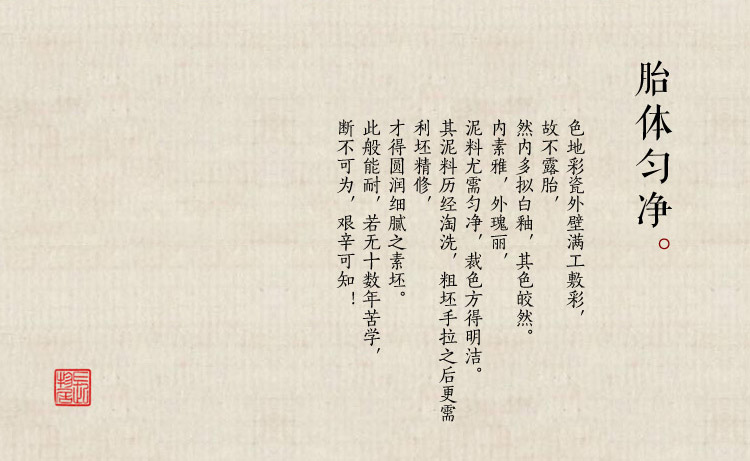 胎体匀净。
色地彩瓷外壁满工敷彩，
故不露胎，
然内多拟白釉，其色皎然。
内素雅，外瑰丽，
泥料尤需匀净，裁色方得明洁。
其泥料历经淘洗，粗坯手拉之后更需
利坯精修，
才得圆润细腻之素坯。
此般能耐，若无十数年苦学，
断不可为，艰辛可知！